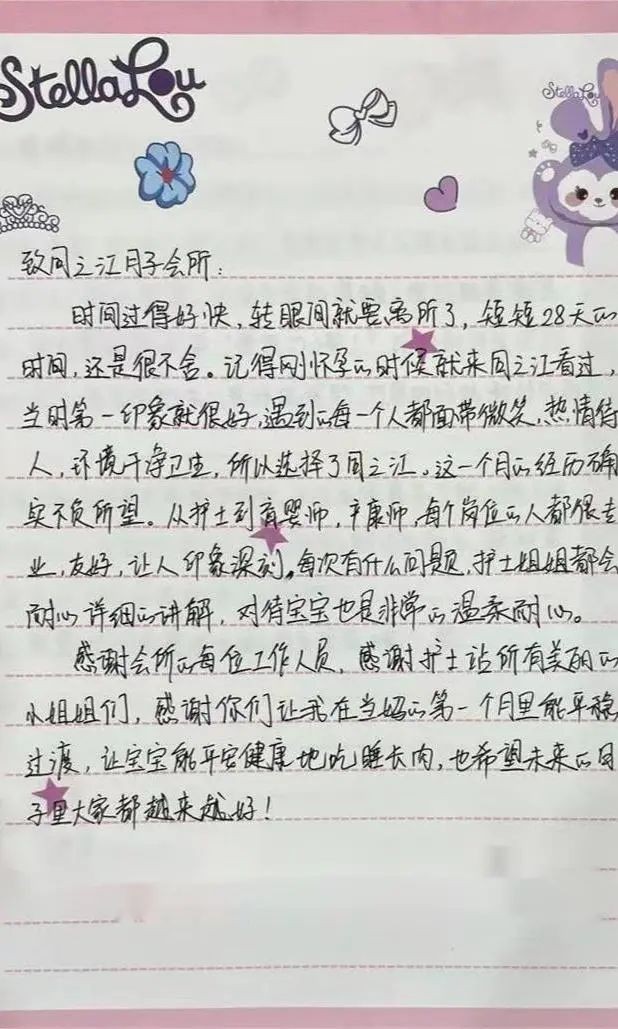 StellaLou
StellaLou
致同之江月子会所：
时间过得好快，转眼间就要离所了，短短28天的
时间，还是很不舍。记得刚怀孕的时候就来同之江看过，
当时第一印象就很好，遇到的每一个人都面带微笑，热情待
人，环境干净卫生，所以选择了同之江。这一个月的经历确
实不负所望。从护士到育婴师，产康师，每个岗位的人都很专
业，友好，让人印象深刻。每次有什么问题，护士姐姐都会
耐心详细的讲解，对待宝宝也是非常的温柔耐心。
感谢会所的每位工作人员，感谢护士站所有美丽的
小姐姐们，感谢你们让我在当妈的第一个月里能平稳
过渡，让宝宝能平安健康地吃睡长肉，也希望未来的日
子里大家都越来越好！